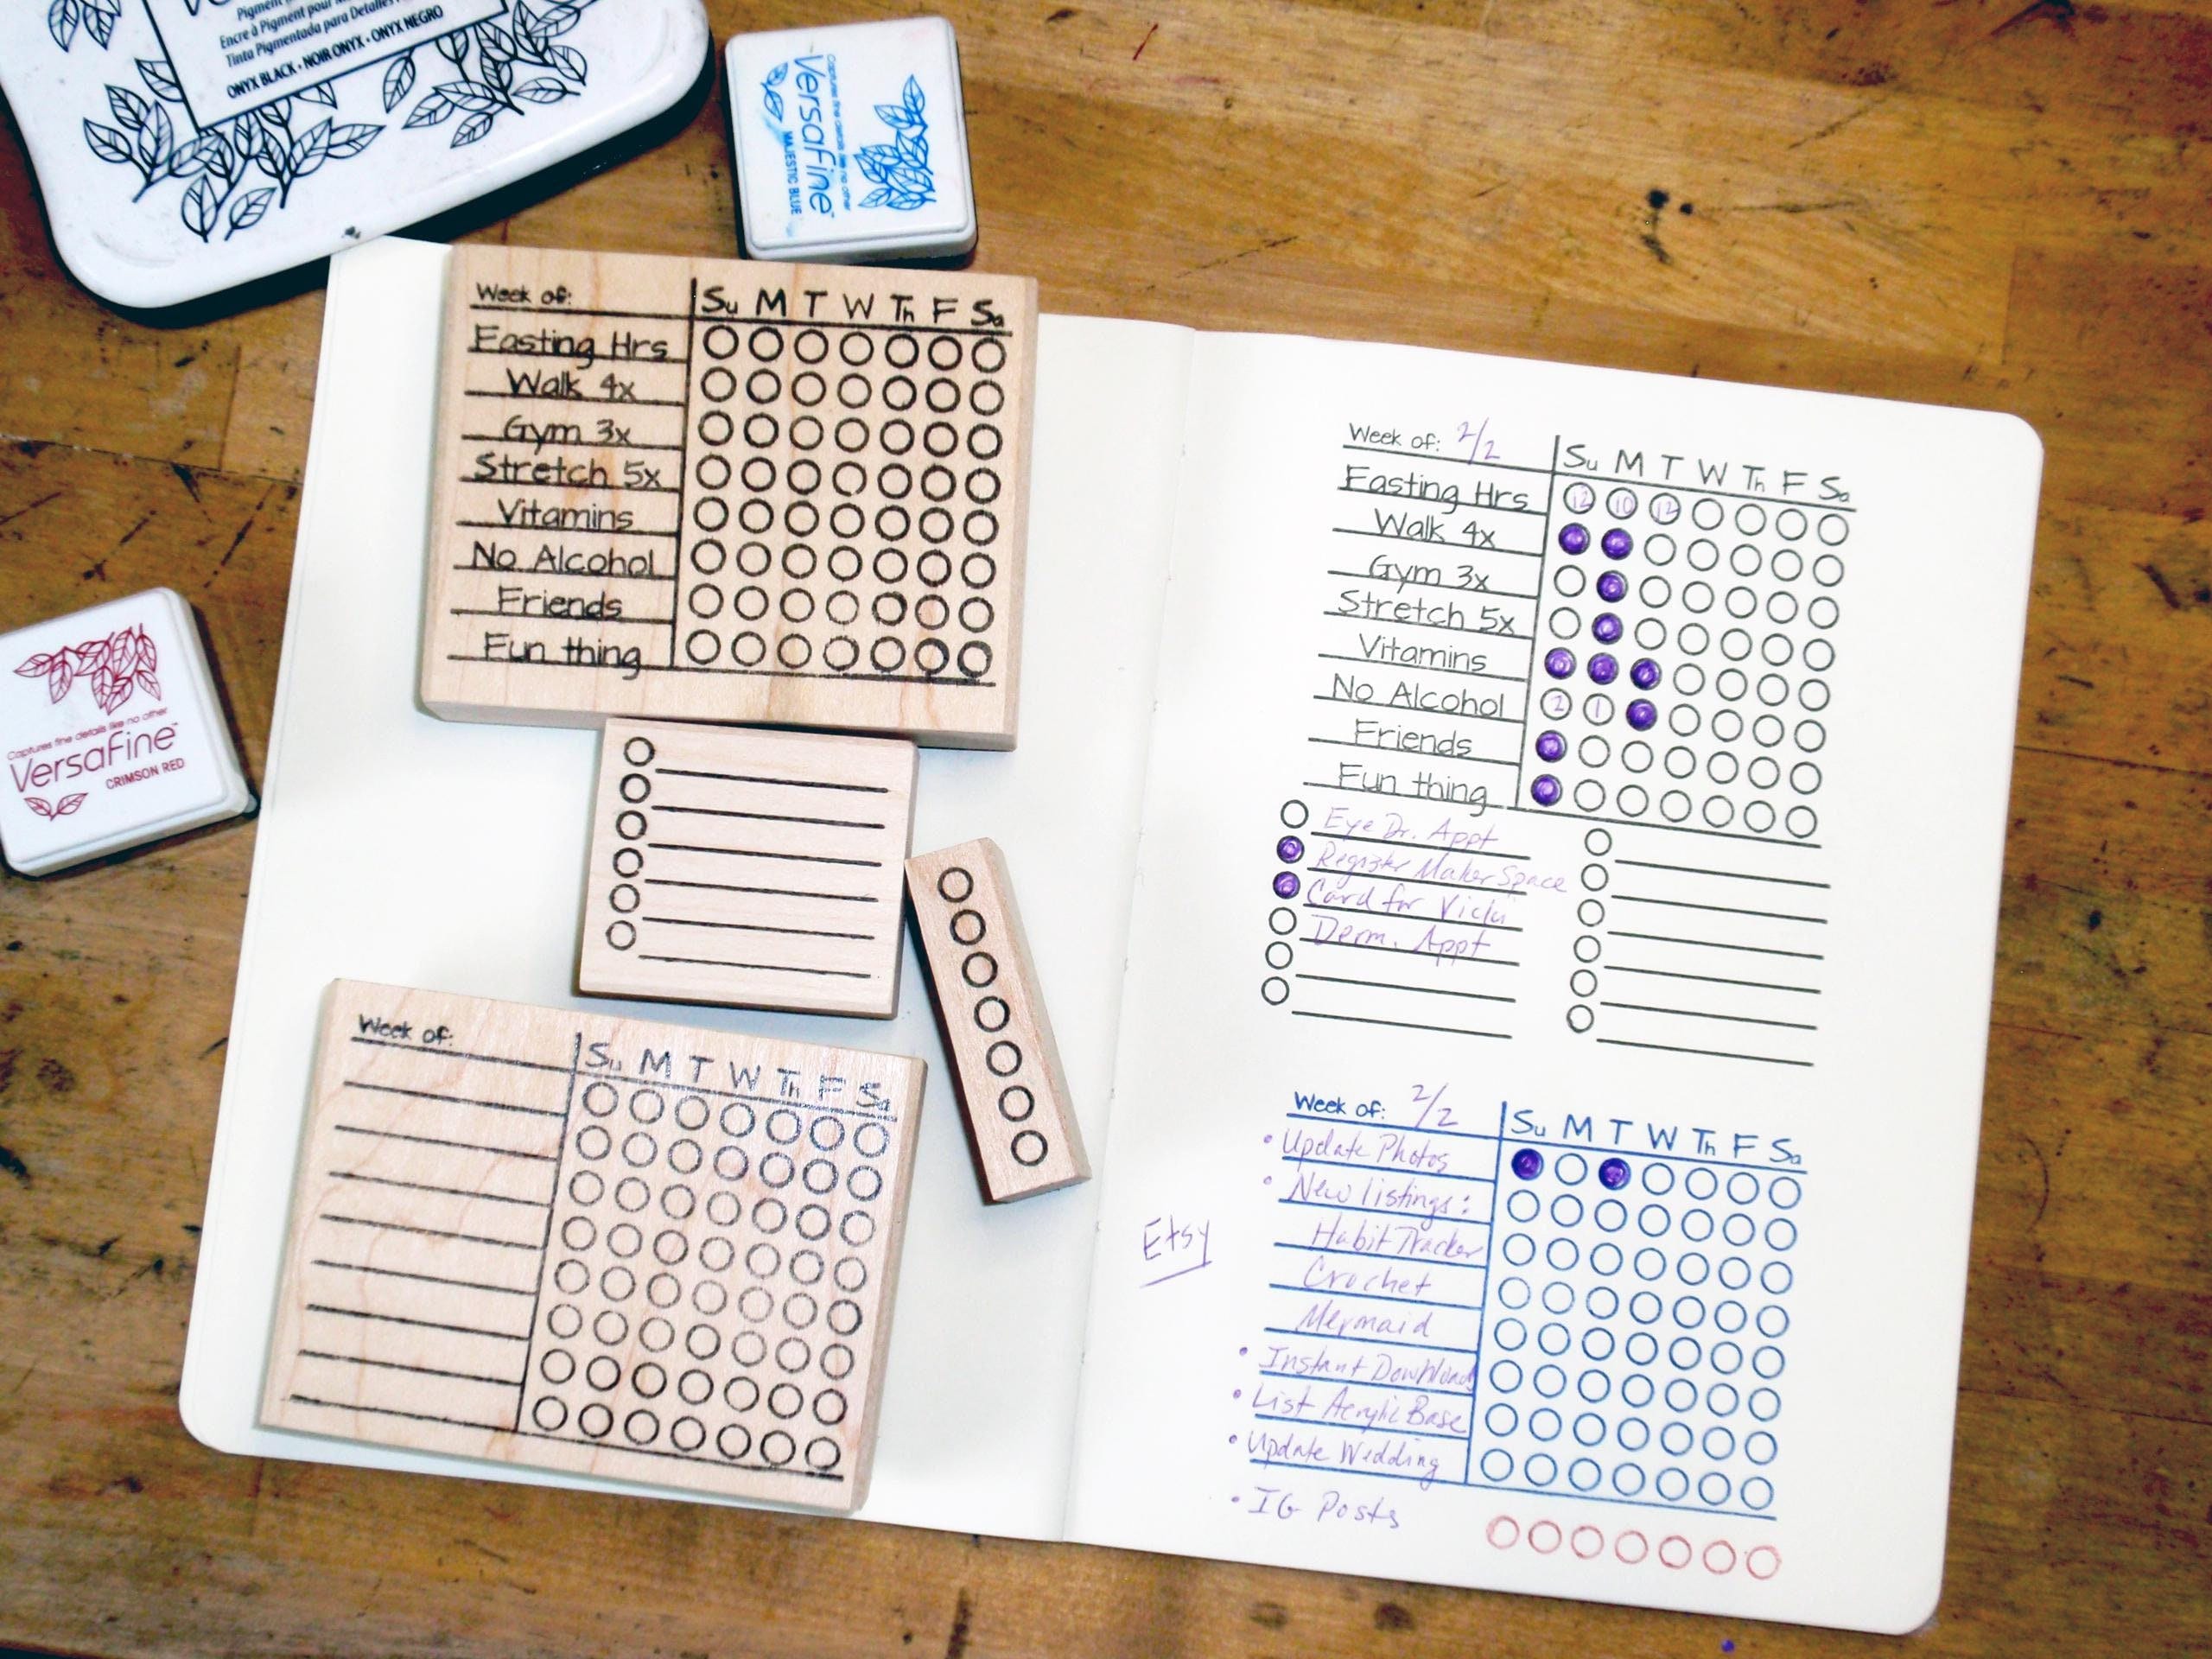 Encre à Pigment pour
Tinta Pigmentada para Detalles
ONYX BLACK • NOIR ONYX • ONYX NEGRO
Captures fine details like no other
VersaFine™
MAJESTIC BLUE
Captures fine details like no other
VersaFine™
CRIMSON RED
Week of: Su M T W Th F Sa
Fasting Hrs
Walk 4x
Gym 3x
Stretch 5x
Vitamins
No Alcohol
Friends
Fun thing
Week of: Su M T W Th F Sa
Week of: 2/2 Su M T W Th F Sa
Fasting Hrs 12 10 12
Walk 4x
Gym 3x
Stretch 5x
Vitamins
No Alcohol 2 1
Friends
Fun thing
Eye Dr. Appt
Register Maker Space
Card for Vicki
Derm. Appt
Etsy
Week of: 2/2 Su M T W Th F Sa
• Update Photos
• New listings:
Habit Tracker
Crochet
Mermaid
• Instant Downloads
• List Acrylic Base
• Update Wedding
• IG Posts